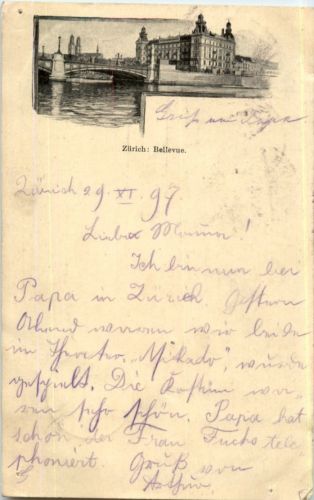 Gruß von Papa
Zürich: Bellevue.
Zürich 29. XI. 97
Liebe Mama!
Ich bin nun bei
Papa in Zürich. Gestern
Abend waren wir beide
im Theater. „Mikado“, wurde
gespielt. Die Kostüm wa-
ren sehr schön. Papa hat
schon der Frau Fuchs tele-
phoniert. Gruß von
Arthur